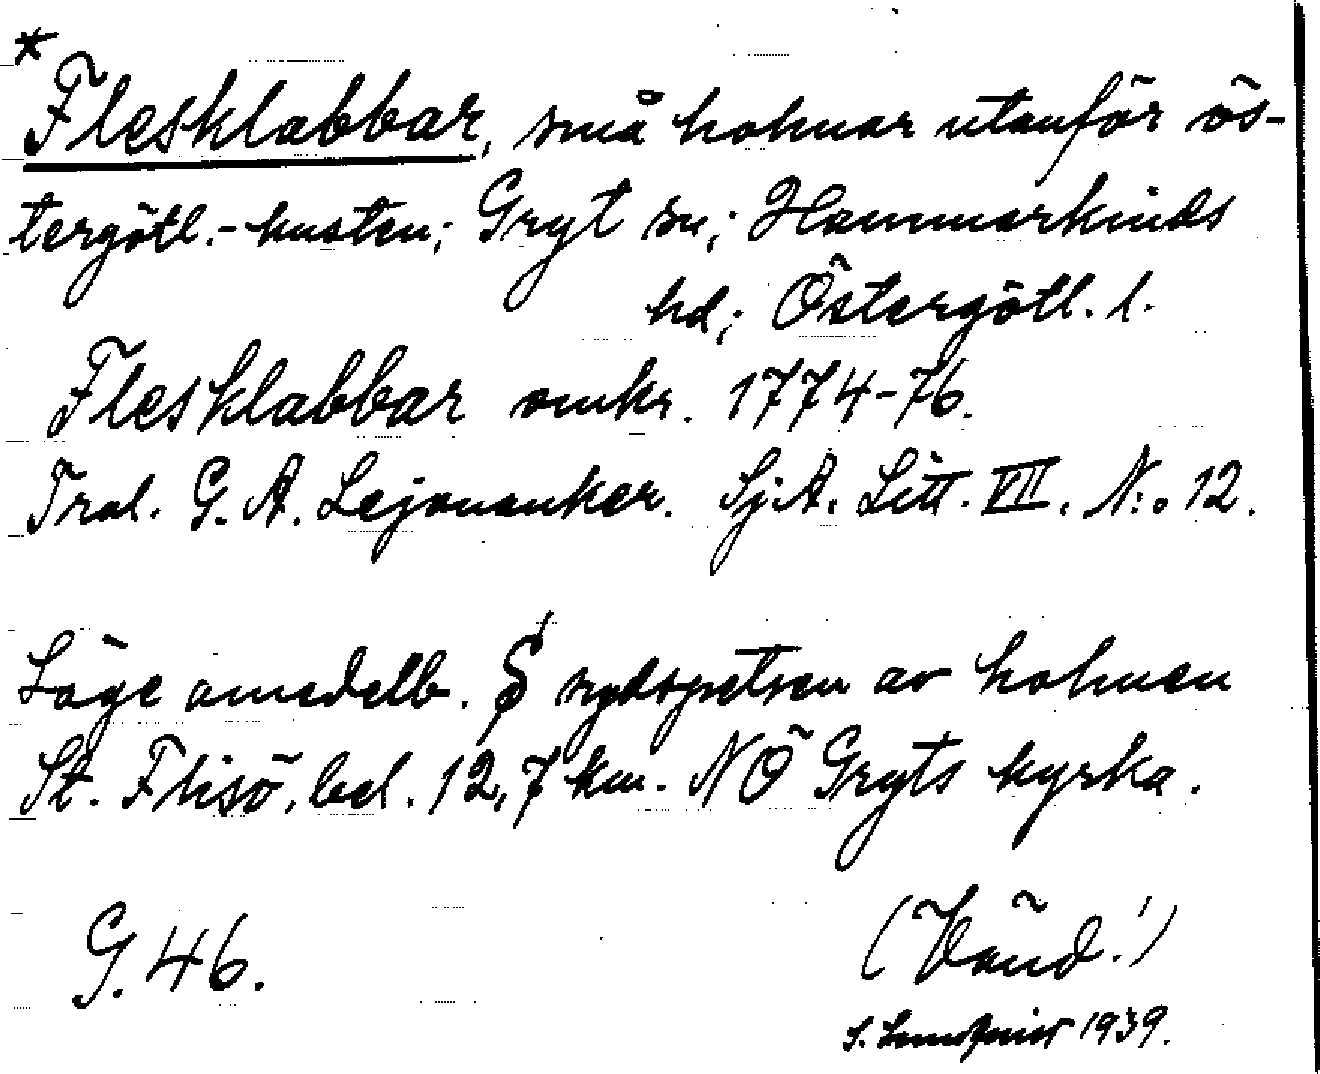 *
Flesklabbar, små holmar utanför ös-
tergötl.-kusten; Gryt sn; Hammarkinds
hd; Östergötl. l.
Flesklabbar omkr. 1774-76.
Tral. G. A. Lejonanker. Sj.A. Litt. VII. N:o 12.
Läge omedelb. S sydspetsen av holmen
St. Flisö, bel. 12,7 km. NÖ Gryts kyrka.
G. 46.
(Vänd!)
S. Lundquist 1939.